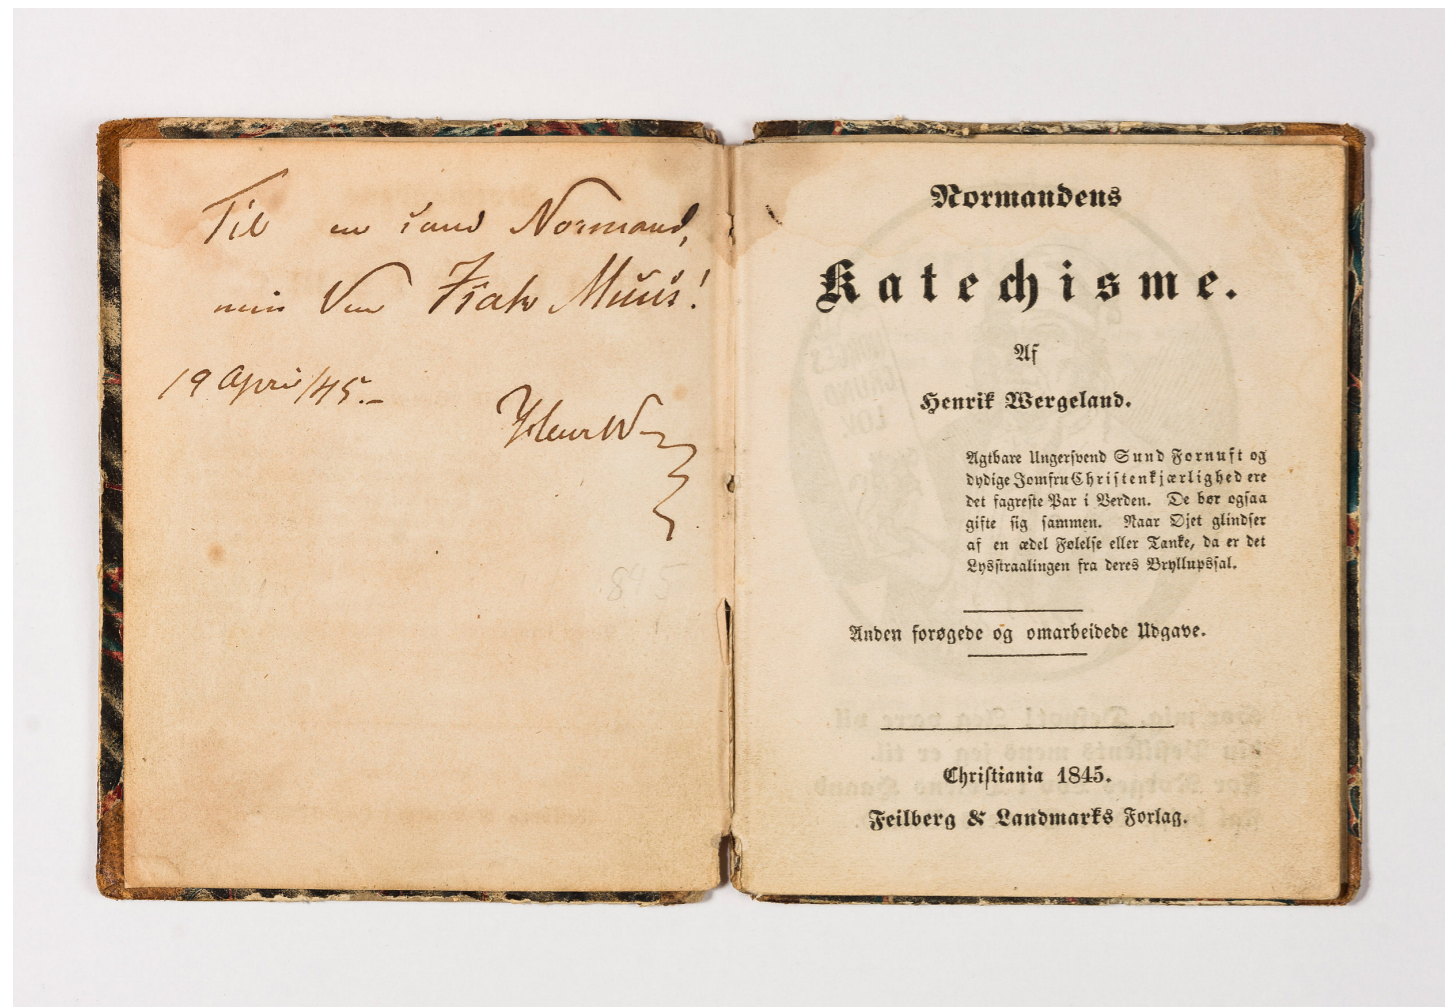 Til en sand Normand,
min Ven Isak Muus!
19 April/45.
HenrW
845
Normandens
Katechisme.
Af
Henrik Wergeland.
Agtbare Ungersvend Sund Fornuft og
dydige Jomfru Christenkjærlighed ere
det fagreste Par i Verden. De bør ogsaa
gifte sig sammen. Naar Øjet glindser
af en ædel Følelse eller Tanke, da er det
Lysstraalingen fra deres Bryllupssal.
Anden forøgede og omarbeidede Udgave.
Christiania 1845.
Feilberg & Landmarks Forlag.
NORGES
GRUND
LOV.